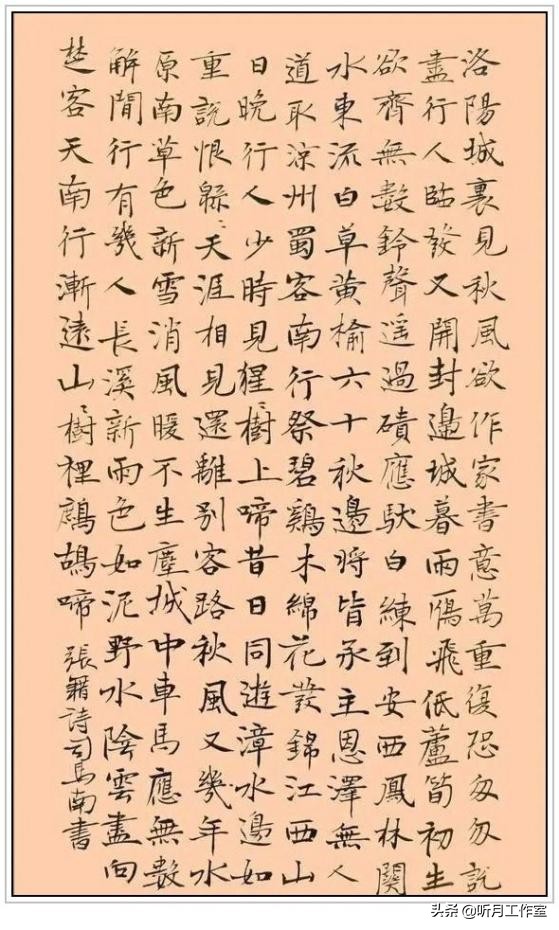 洛陽城裏見秋風欲作家書意萬重復恐匆匆説
盡行人臨發又開封邉城暮雨鴈飛低蘆筍初生
欲齊無數鈴聲遥過磧應馱白練到安西鳳林關
水東流白草黄榆六十秋邉將皆承主恩澤無人
道取涼州蜀客南行祭碧鷄木綿花發錦江西山
日晚行人少時見猩〻樹上啼昔日同遊漳水邉如
重説恨緜〻天涯相見還離别客路秋風又幾年水
原南草色新雪消風暖不生塵城中車馬應無數
解閒行有幾人長溪新雨色如泥野水陰雲盡向
楚客天南行漸遠山〻樹裡鷓鴣啼 張籍詩司馬南書
头条 @听月工作室